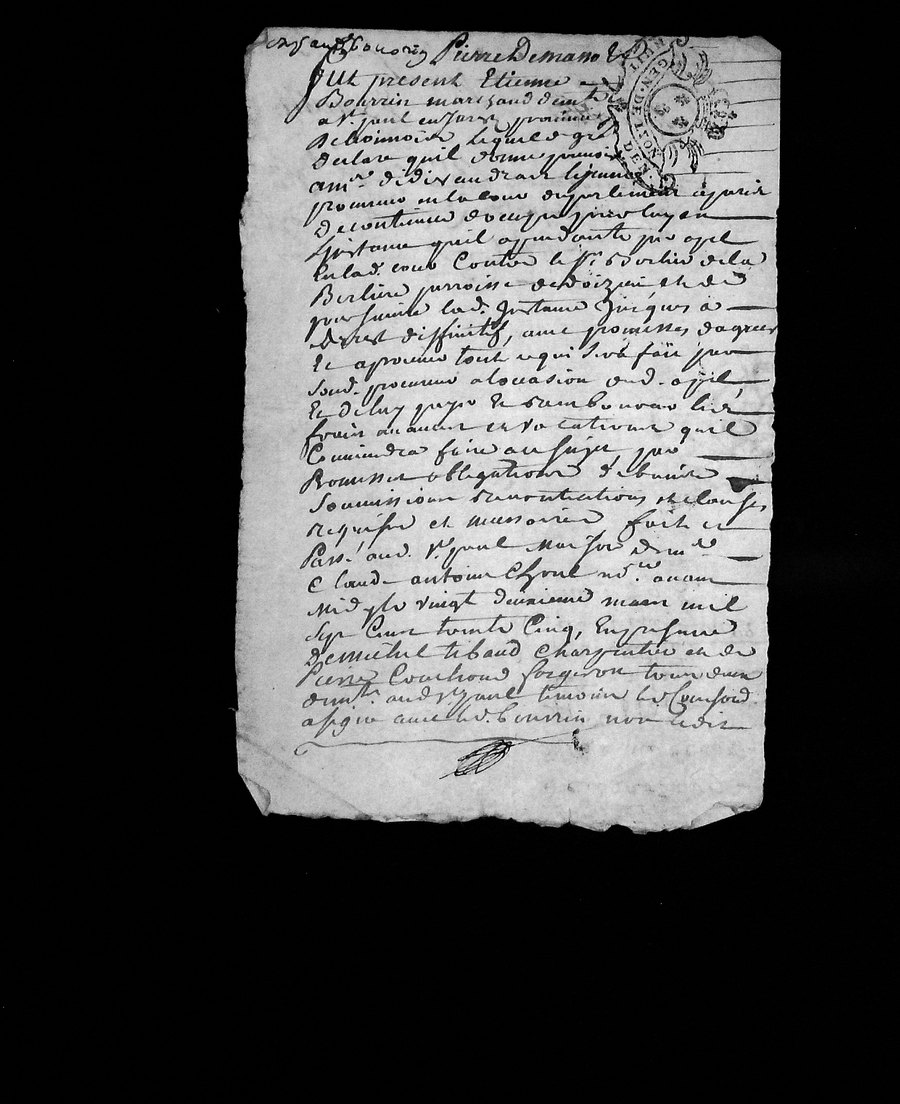 Pierre Demano
Fut present Etienne
Bourrin marchand demt
a St. paul en Jarest province
De lionnois lequel de gré
declare quil donne pouvoir
a me. didier audran lejeune
procureur en la cour du parlement a paris
de continuer doccuper pour luy en
Linstance quil a pendante par apel
En lad. cour Contre le sr.
Berliere parroisse de doizieu et de
poursuivre lad. Instance Jusques a
arrest diffinitif, avec promesses dagreer
Et aprouver tout ce qui sera fait par
sond. procureur a loccasion dud. apel
Et de luy payer Et rembourcer les
frais avances et vacations quil
Conviendra faire au sujet, par
Promesses obligations de biens
Soumissions renontiations et clauses
requises et necessaires fait et
Passé aud. St. paul Maison de me.
Claude antoine nore. avant
Midy le vingt deuxieme mars mil
Sept Cens trente Cinq, En presence
De Michel tibaud Charpentier et de
Pierre Couchoud forgeron tous deux
demts. aud St paul temoins led. Couchoud
a signé avec led. bourrin non ledit
GEN. DE LYON
DEN.